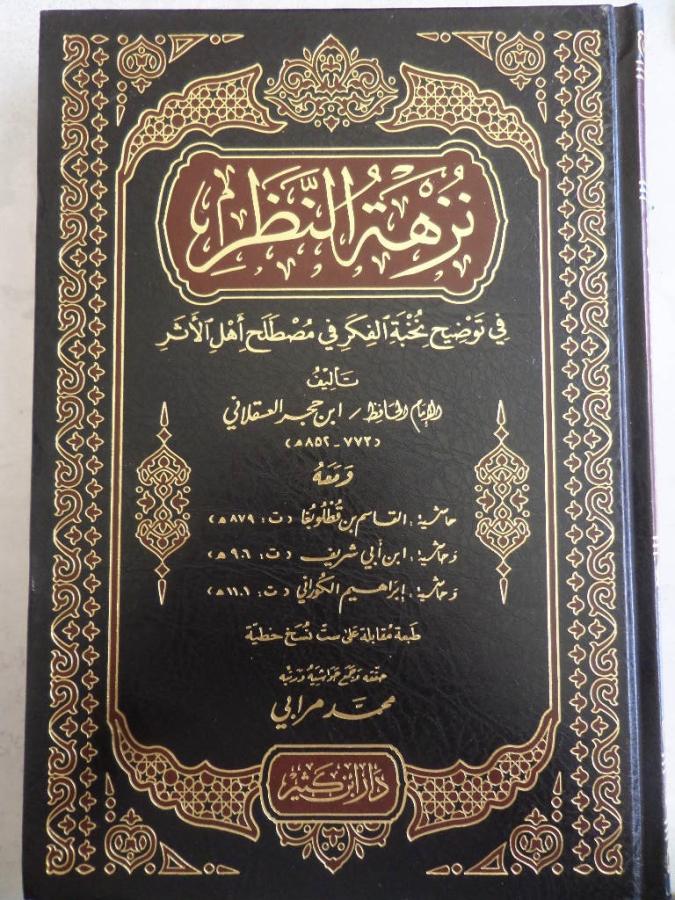 نُزْهَةُ النَّظَرِ
فِي تَوْضِيحِ نُخْبَةِ الفِكَرِ فِي مُصْطَلَحِ أَهْلِ الأَثَرِ
تَأليفُ
الإِمَام الحَافِظ / ابن حجر العسقلاني
(٧٧٣ - ٨٥٢ھ)
وَمَعَهُ
حاشية: القاسم بن قُطْلُوبُغَا (ت: ٨٧٩ھ)
وحاشية: ابن أبي شريف (ت: ٩٠٦ھ)
وحاشية: إبراهيم الكوراني (ت: ١١٠١ھ)
طبعة مُقابلة على ستّ نُسَخ خطّية
حققه وجمع حواشيه ورتبه
محمّد مرابي
دَارُ ابْنِ كَثِير